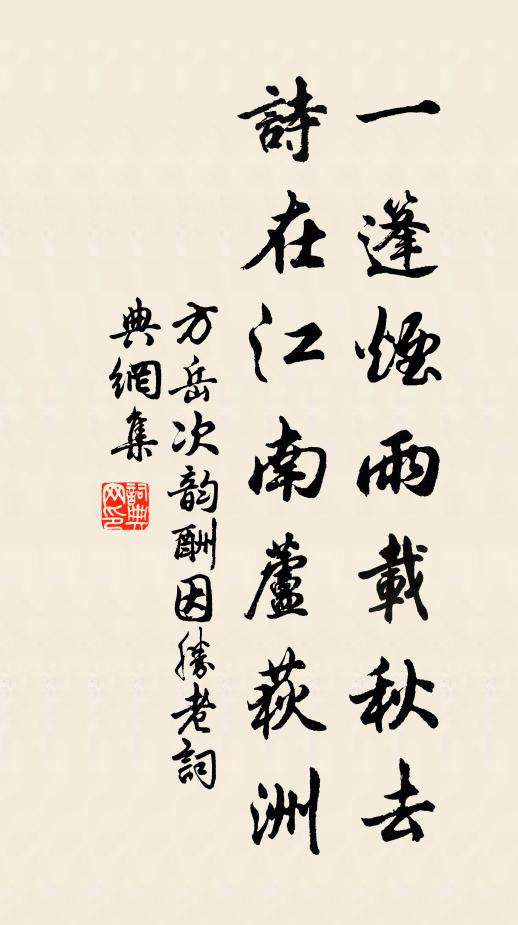 一篷煙雨載秋去
詩在江南蘆荻洲
方岳次韵酬因勝老詞
典網集
詞典網印